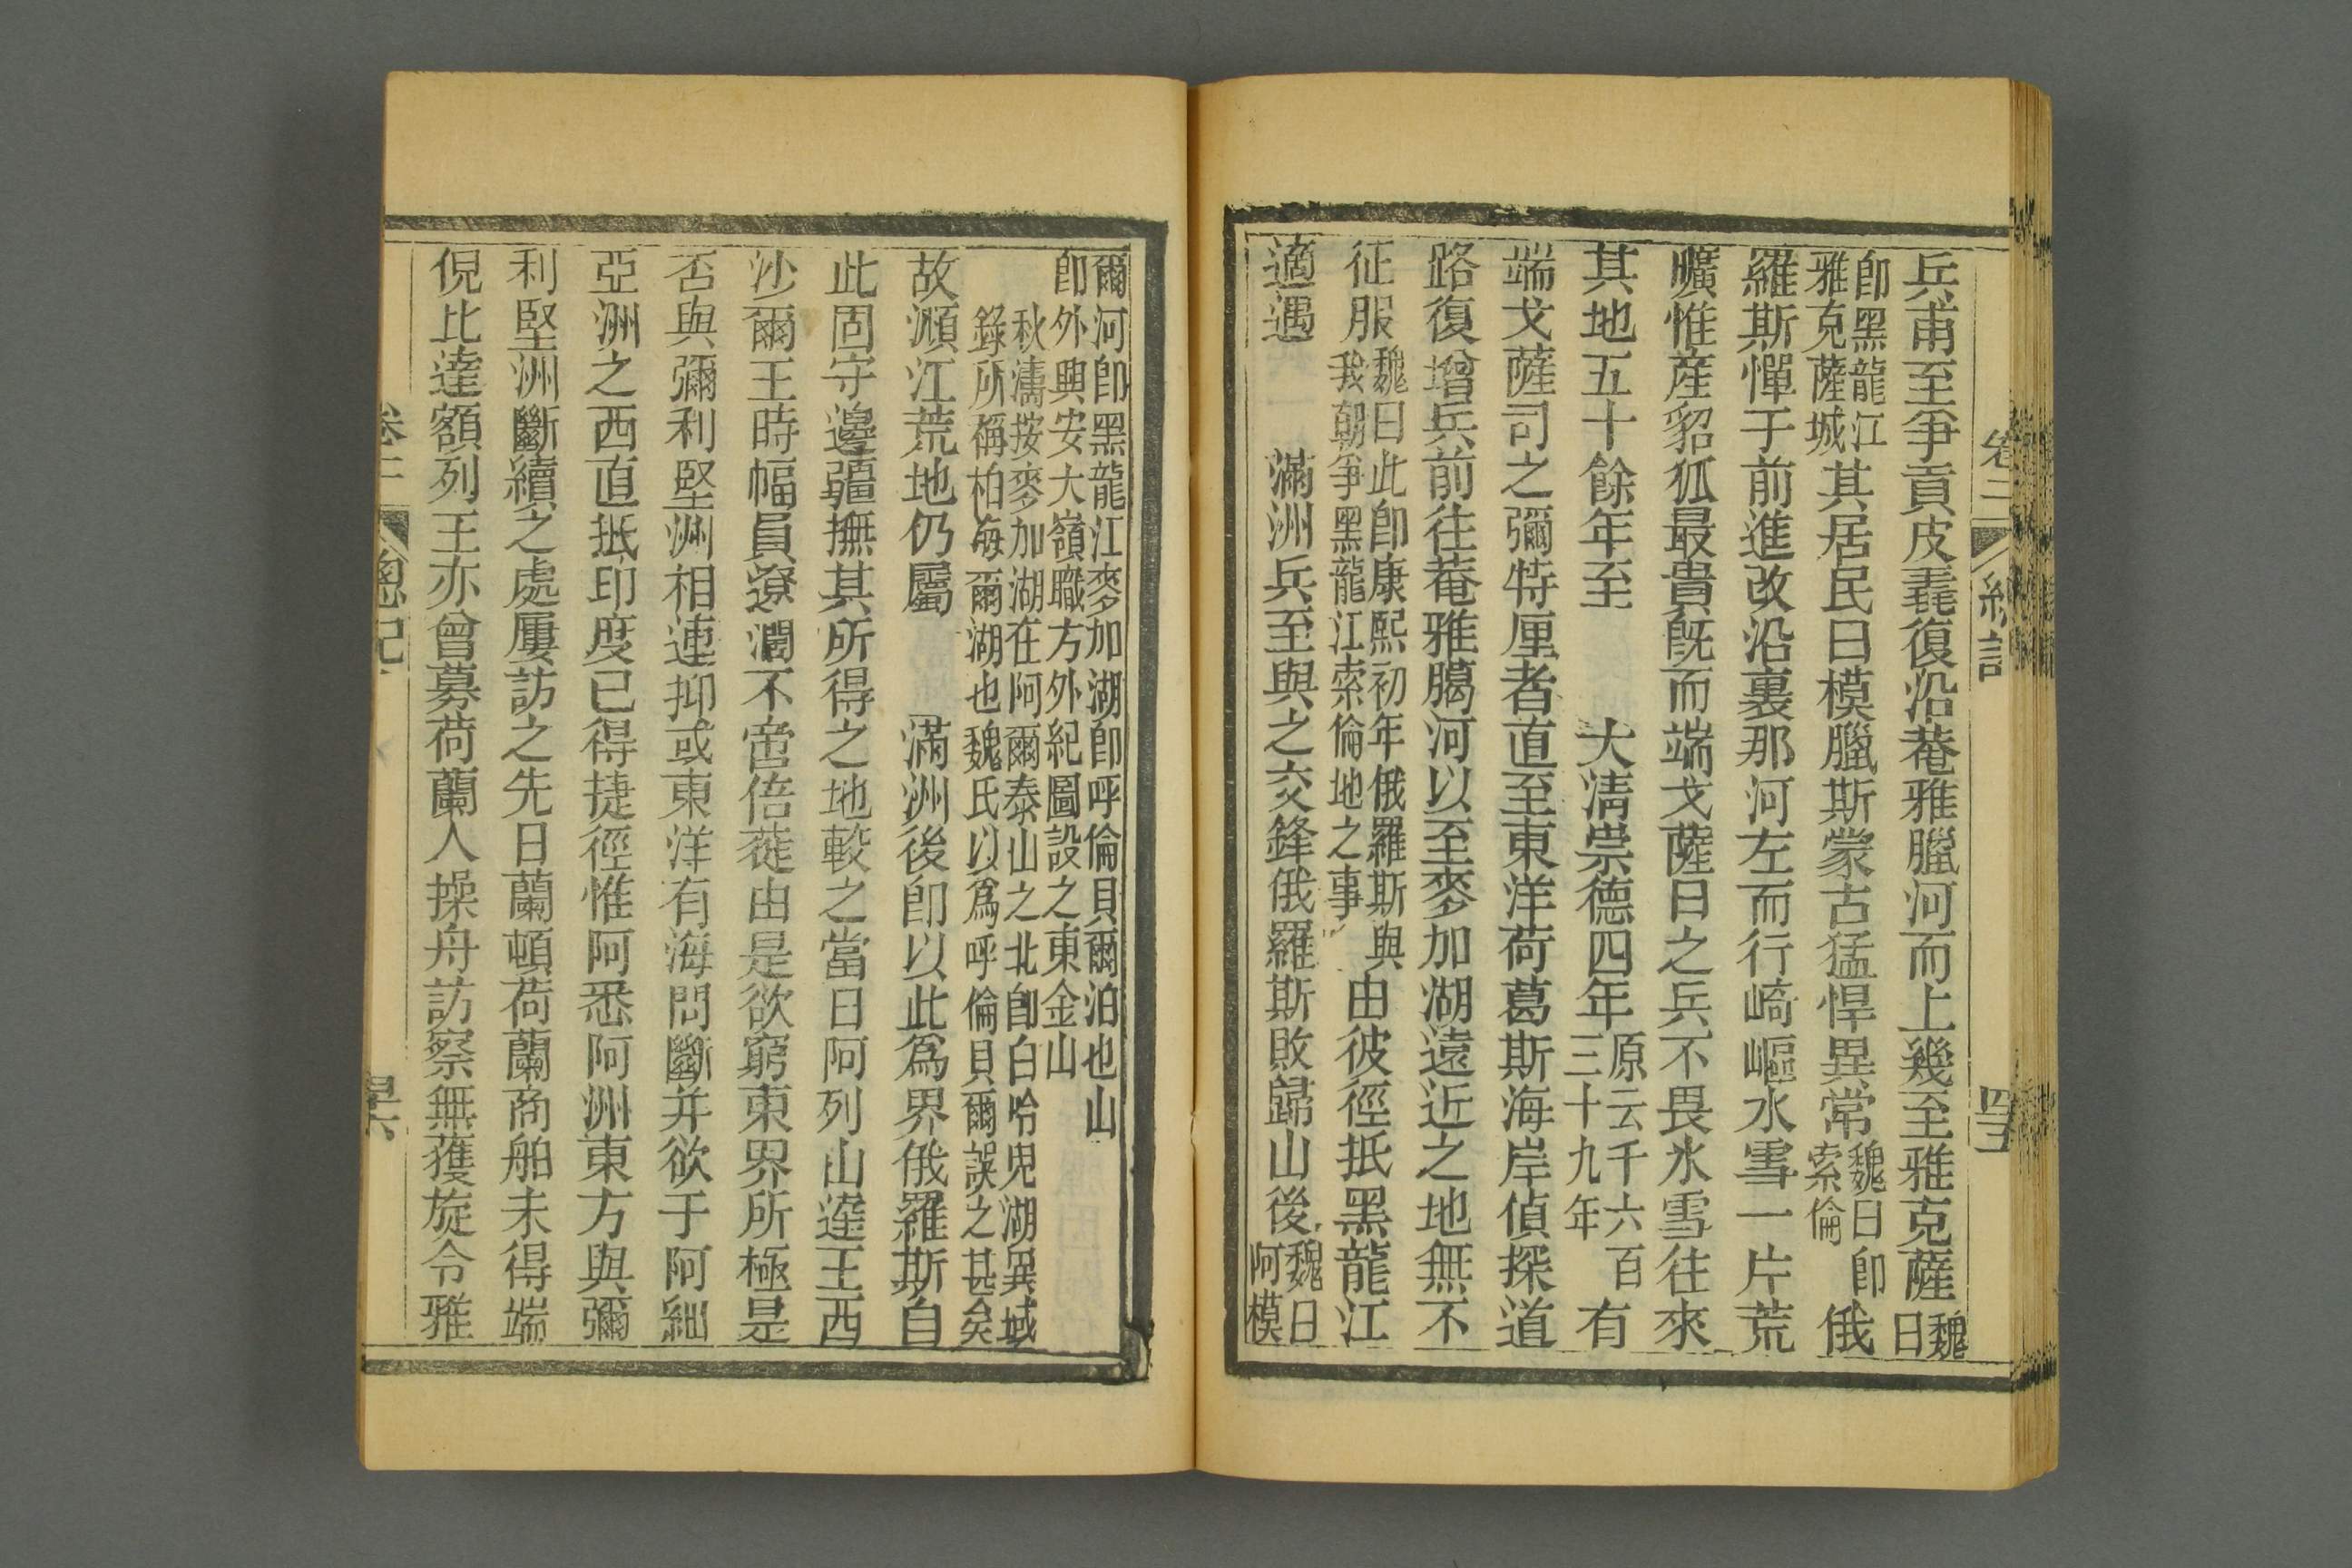 卷二
四五
兵甫至爭貢皮毳復沿菴雅臘河而上幾至雅克薩魏曰
卽黑龍江雅克薩城其居民曰模臘斯蒙古猛悍異常魏曰卽索倫俄
羅斯憚于前進改沿裏那河左而行崎嶇水雪一片荒
曠惟産貂狐最貴旣而端戈薩曰之兵不畏氷雪往來
其地五十餘年至 大淸崇德四年原云千六百三十九年有
端戈薩司之彌特厘者直至東洋荷葛斯海岸偵探道
路復增兵前往菴雅臈河以至麥加湖遠近之地無不
征服魏曰此卽康熙初年俄羅斯與我朝爭黑龍江索倫地之事由彼徑抵黑龍江
適遇 滿洲兵至與之交鋒俄羅斯敗歸山後魏曰阿模
爾河卽黑龍江麥加湖卽呼倫貝爾泊也山卽外興安大嶺職方外紀圖設之東金山
秋濤按麥加湖在阿爾泰山之北卽白哈兒湖異域錄所稱柏海爾湖也魏氏以爲呼倫貝爾誤之甚矣
故瀕江荒地仍屬 滿洲後卽以此爲界俄羅斯自
此固守邊疆撫其所得之地較之當日阿列山達王西
沙爾王時幅員遼濶不啻倍蓰由是欲窮東界所極是
否與彌利堅洲相連抑或東洋有海問斷并欲于阿細
亞洲之西直抵印度已得捷徑惟阿悉阿洲東方與彌
利堅洲斷續之處屢訪之先日蘭頓荷蘭商舶未得端
倪比達額列王亦曾募荷蘭人操舟訪察無獲旋令雅
卷二
總記